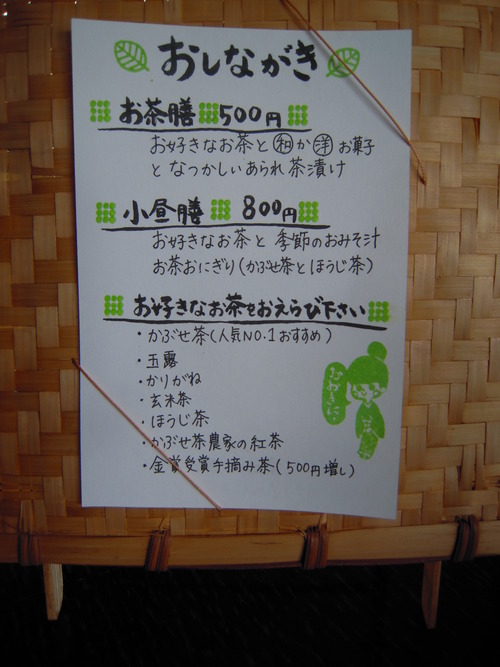 おしながき
お茶膳 500円
お好きなお茶と㊑か㋵お菓子
となつかしいあられ茶漬け
小昼膳 800円
お好きなお茶と季節のおみそ汁
お茶おにぎり(かぶせ茶とほうじ茶)
お好きなお茶をおえらび下さい
・かぶせ茶(人気NO.1おすすめ)
・玉露
・かりがね
・玄米茶
・ほうじ茶
・かぶせ茶農家の紅茶
・金賞受賞手摘み茶(500円増し)